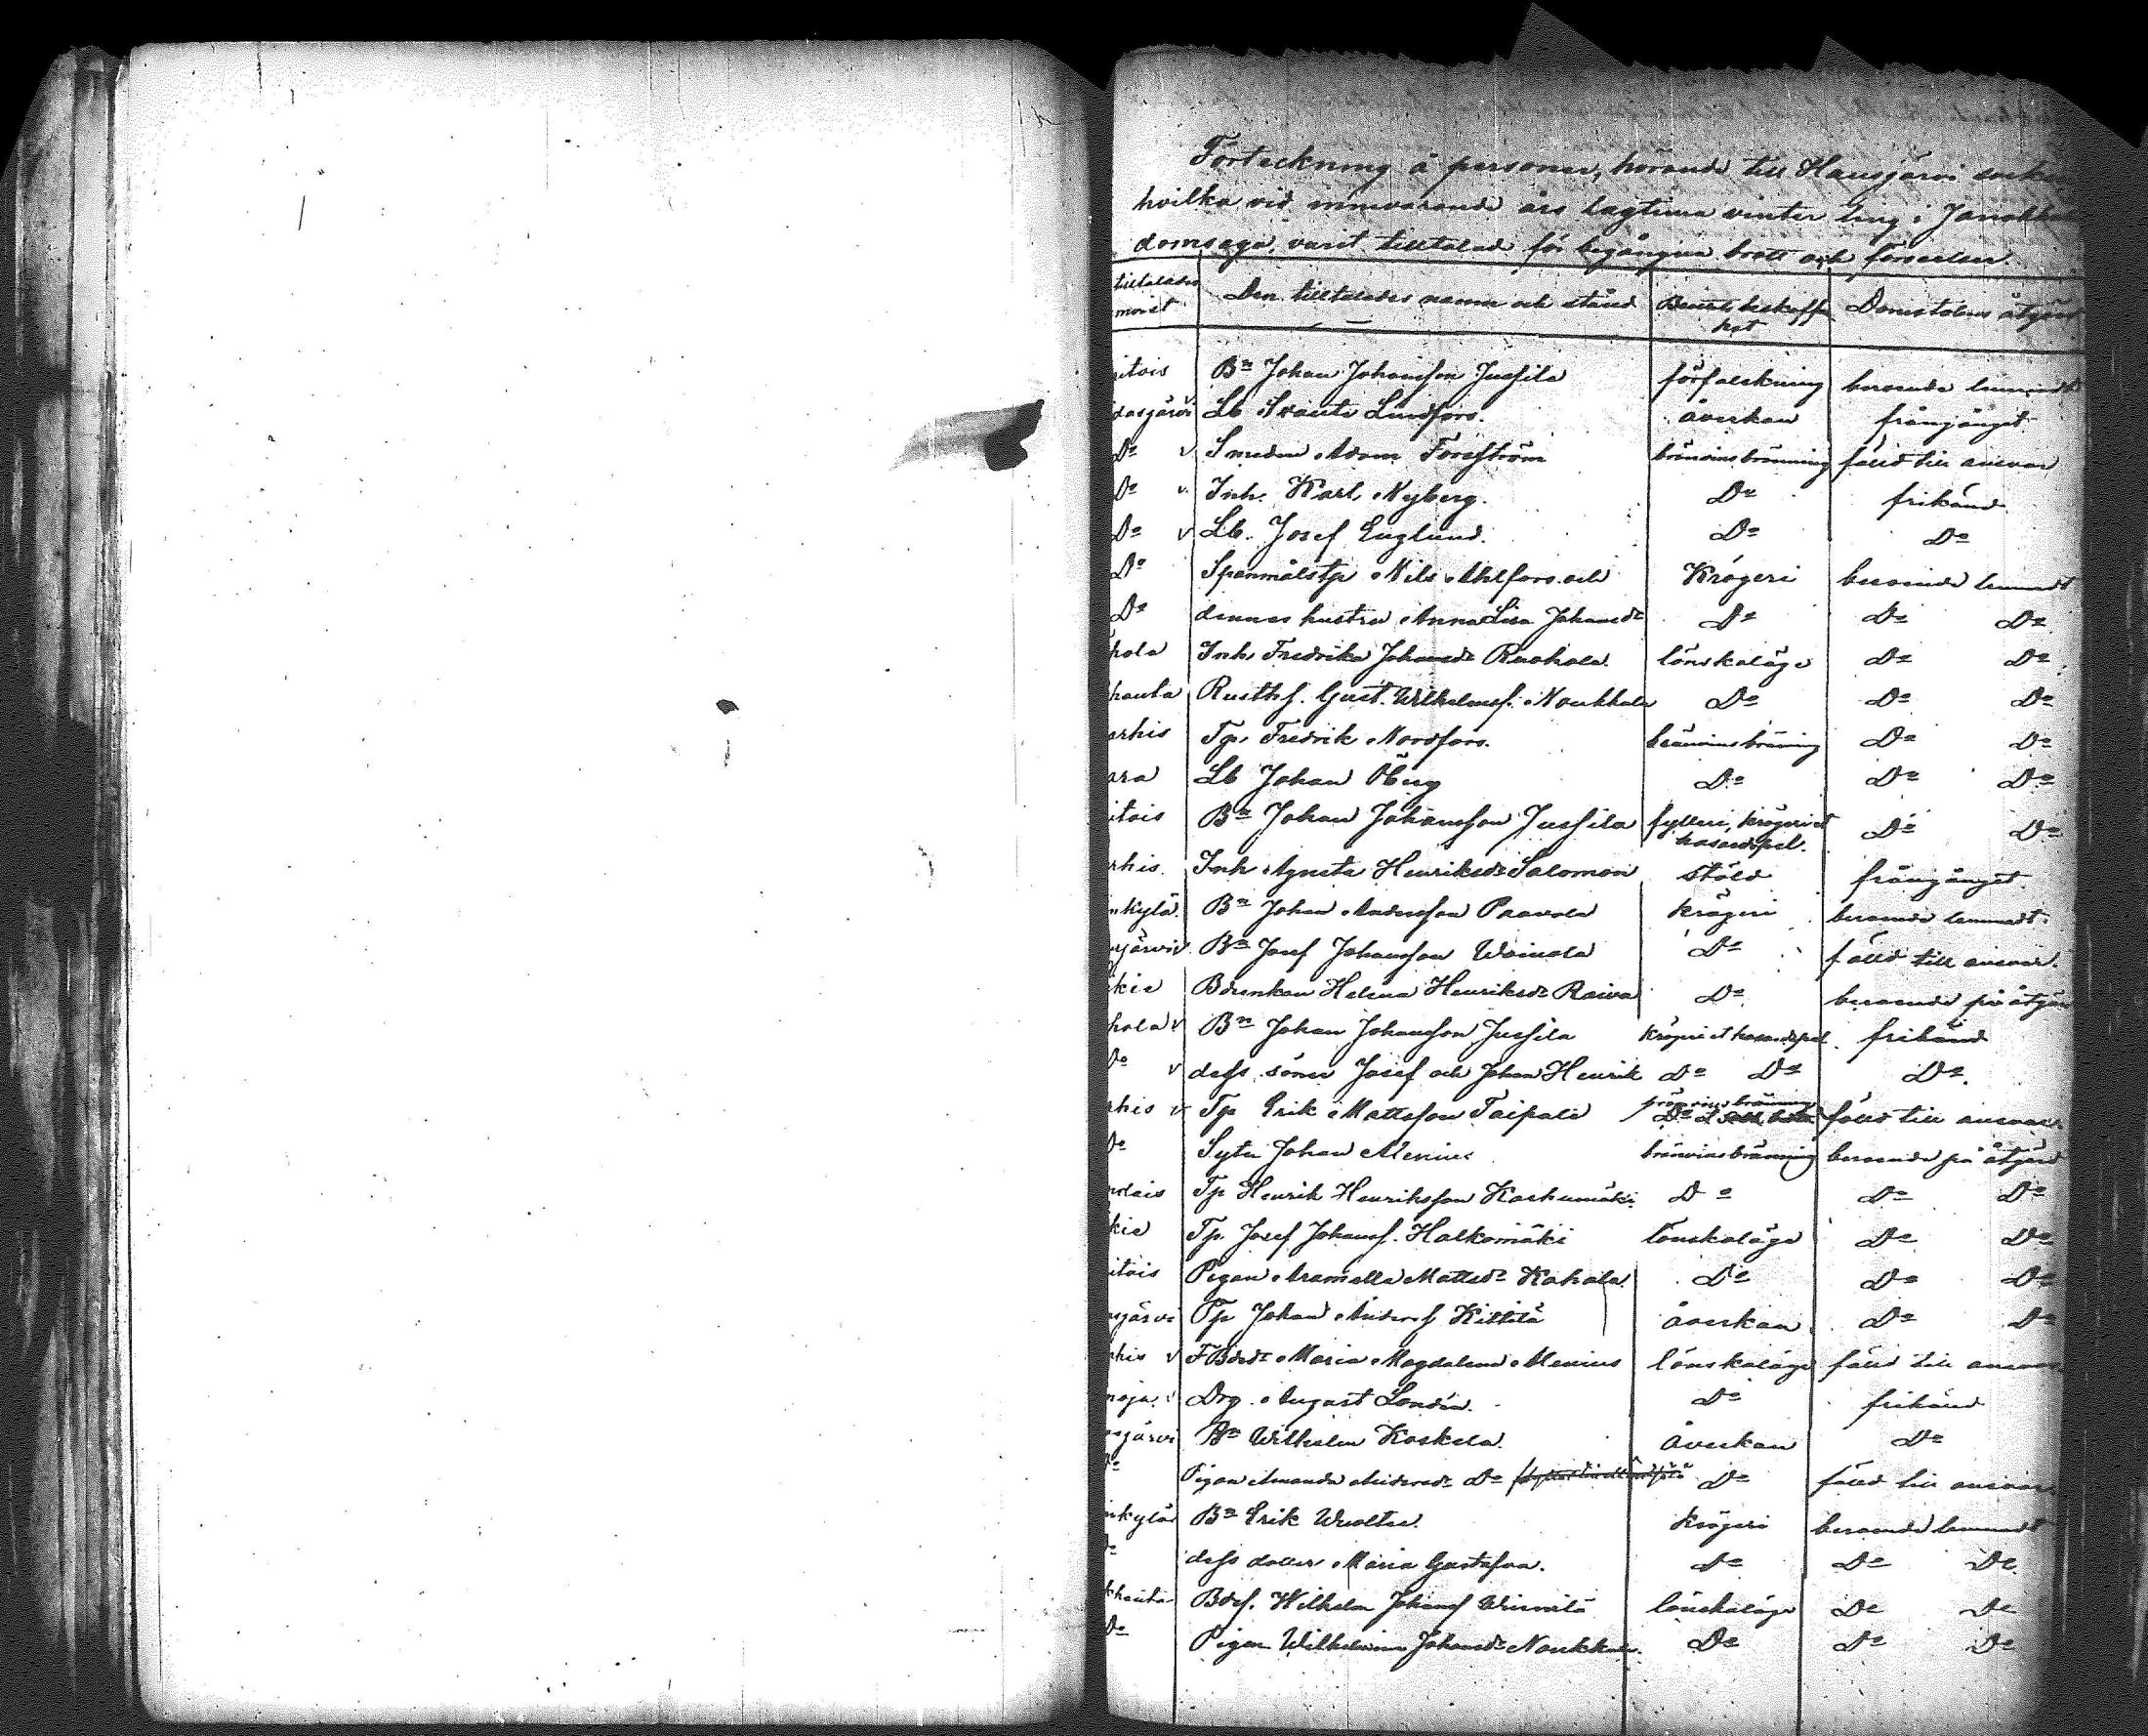 Förteckning å personer, hörande till Hausjärvi
hvilka vid innevarande års lagtima vinter ting i
domsaga, varit tilltalad för begångna brott och förseelser.
tilltalades Den tilltalades namn och stånd Domstolens åtgärd
itois Bn Johan Johansson Jussila förfalskning beroende lemnadt
Lb Svante Lindfors. åverkan frångånget
Do v Smeden Adam Forsström bränvinsbränning fälld till ansvar
Do v. Inh. Karl Nyberg. Do frikänd
Do v Lb. Josef Englund. Do Do
Do Nils Ahlfors och Krögeri beroende lemnadt
Do dennes hustru Anna Lisa Johansdr Do Do Do
hola Inh. Fredrika Johansdr Ruohola. lönskaläge Do Do
hauta Rusth.s. Gust. Wilhelmss. Noukkala Do Do Do
arhis Tp. Fredrik Nordfors. bränvinsbränning Do Do
ara Lb Johan Öberg Do Do Do
itois Bn Johan Johansson Jussila fylleri, krögeri et Do Do
hasardspel.
rhis. Inh Agneta Henriksdr Salomon stöld frångånget.
nkylä. Bn Johan Andersson Paavola krögeri beroende lemnadt.
sjärvi v. Bn Josef Johansson Wainola Do fälld till ansvar.
kie Helena Henriksdr Raiva Do beroende på åtgärd
hola v Bn Johan Johansson Jussila krögeri et hasardspel. frikänd
Do v dess söner Josef och Johan Henrik Do Do Do.
rhis v Tp Erik Mattsson Taipale bränvinsbränning fälld till ansvar
Do Johan Menius bränvinsbränning beroende på åtgärd
Tp Henrik Henriksson Do Do Do
kie Tp. Josef Johanss. Halkomäki lönskaläge Do Do
itois Pigan Mattsdr Kahala. Do Do Do
sjärvi Tp Johan Anderss Kittilä åverkan Do Do
rhis v Maria Magdalena Menius lönskaläge fälld till ansvar
noja. v Drg. August Londén. Do frikänd
sjärvi Bn Wilhelm Koskela. åverkan Do
Do Pigan Amanda Andersdr Do Do fälld till ansvar
nkylä Bn Erik krögeri beroende lemnadt
Do dess dotter Maria Gustafva. Do Do Do
khauta Bdes. Wilhelm Johanss lönskaläge Do Do
Do Pigan Wilhelmina Johansdr Noukkala. Do Do Do